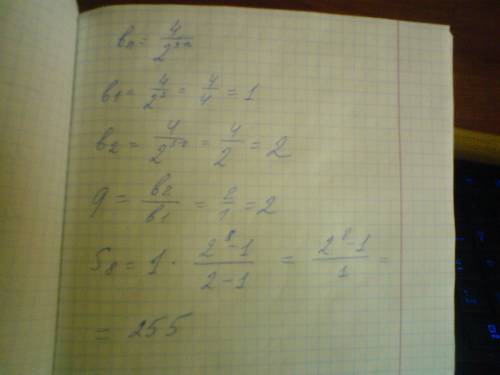 bn = 4/2^(3-n)
b1 = 4/2^2 = 4/4 = 1
b2 = 4/2^(3-2) = 4/2 = 2
q = b2/b1 = 2/1 = 2
S8 = 1 · (2^8-1)/(2-1) = (2^8-1)/1 =
= 255